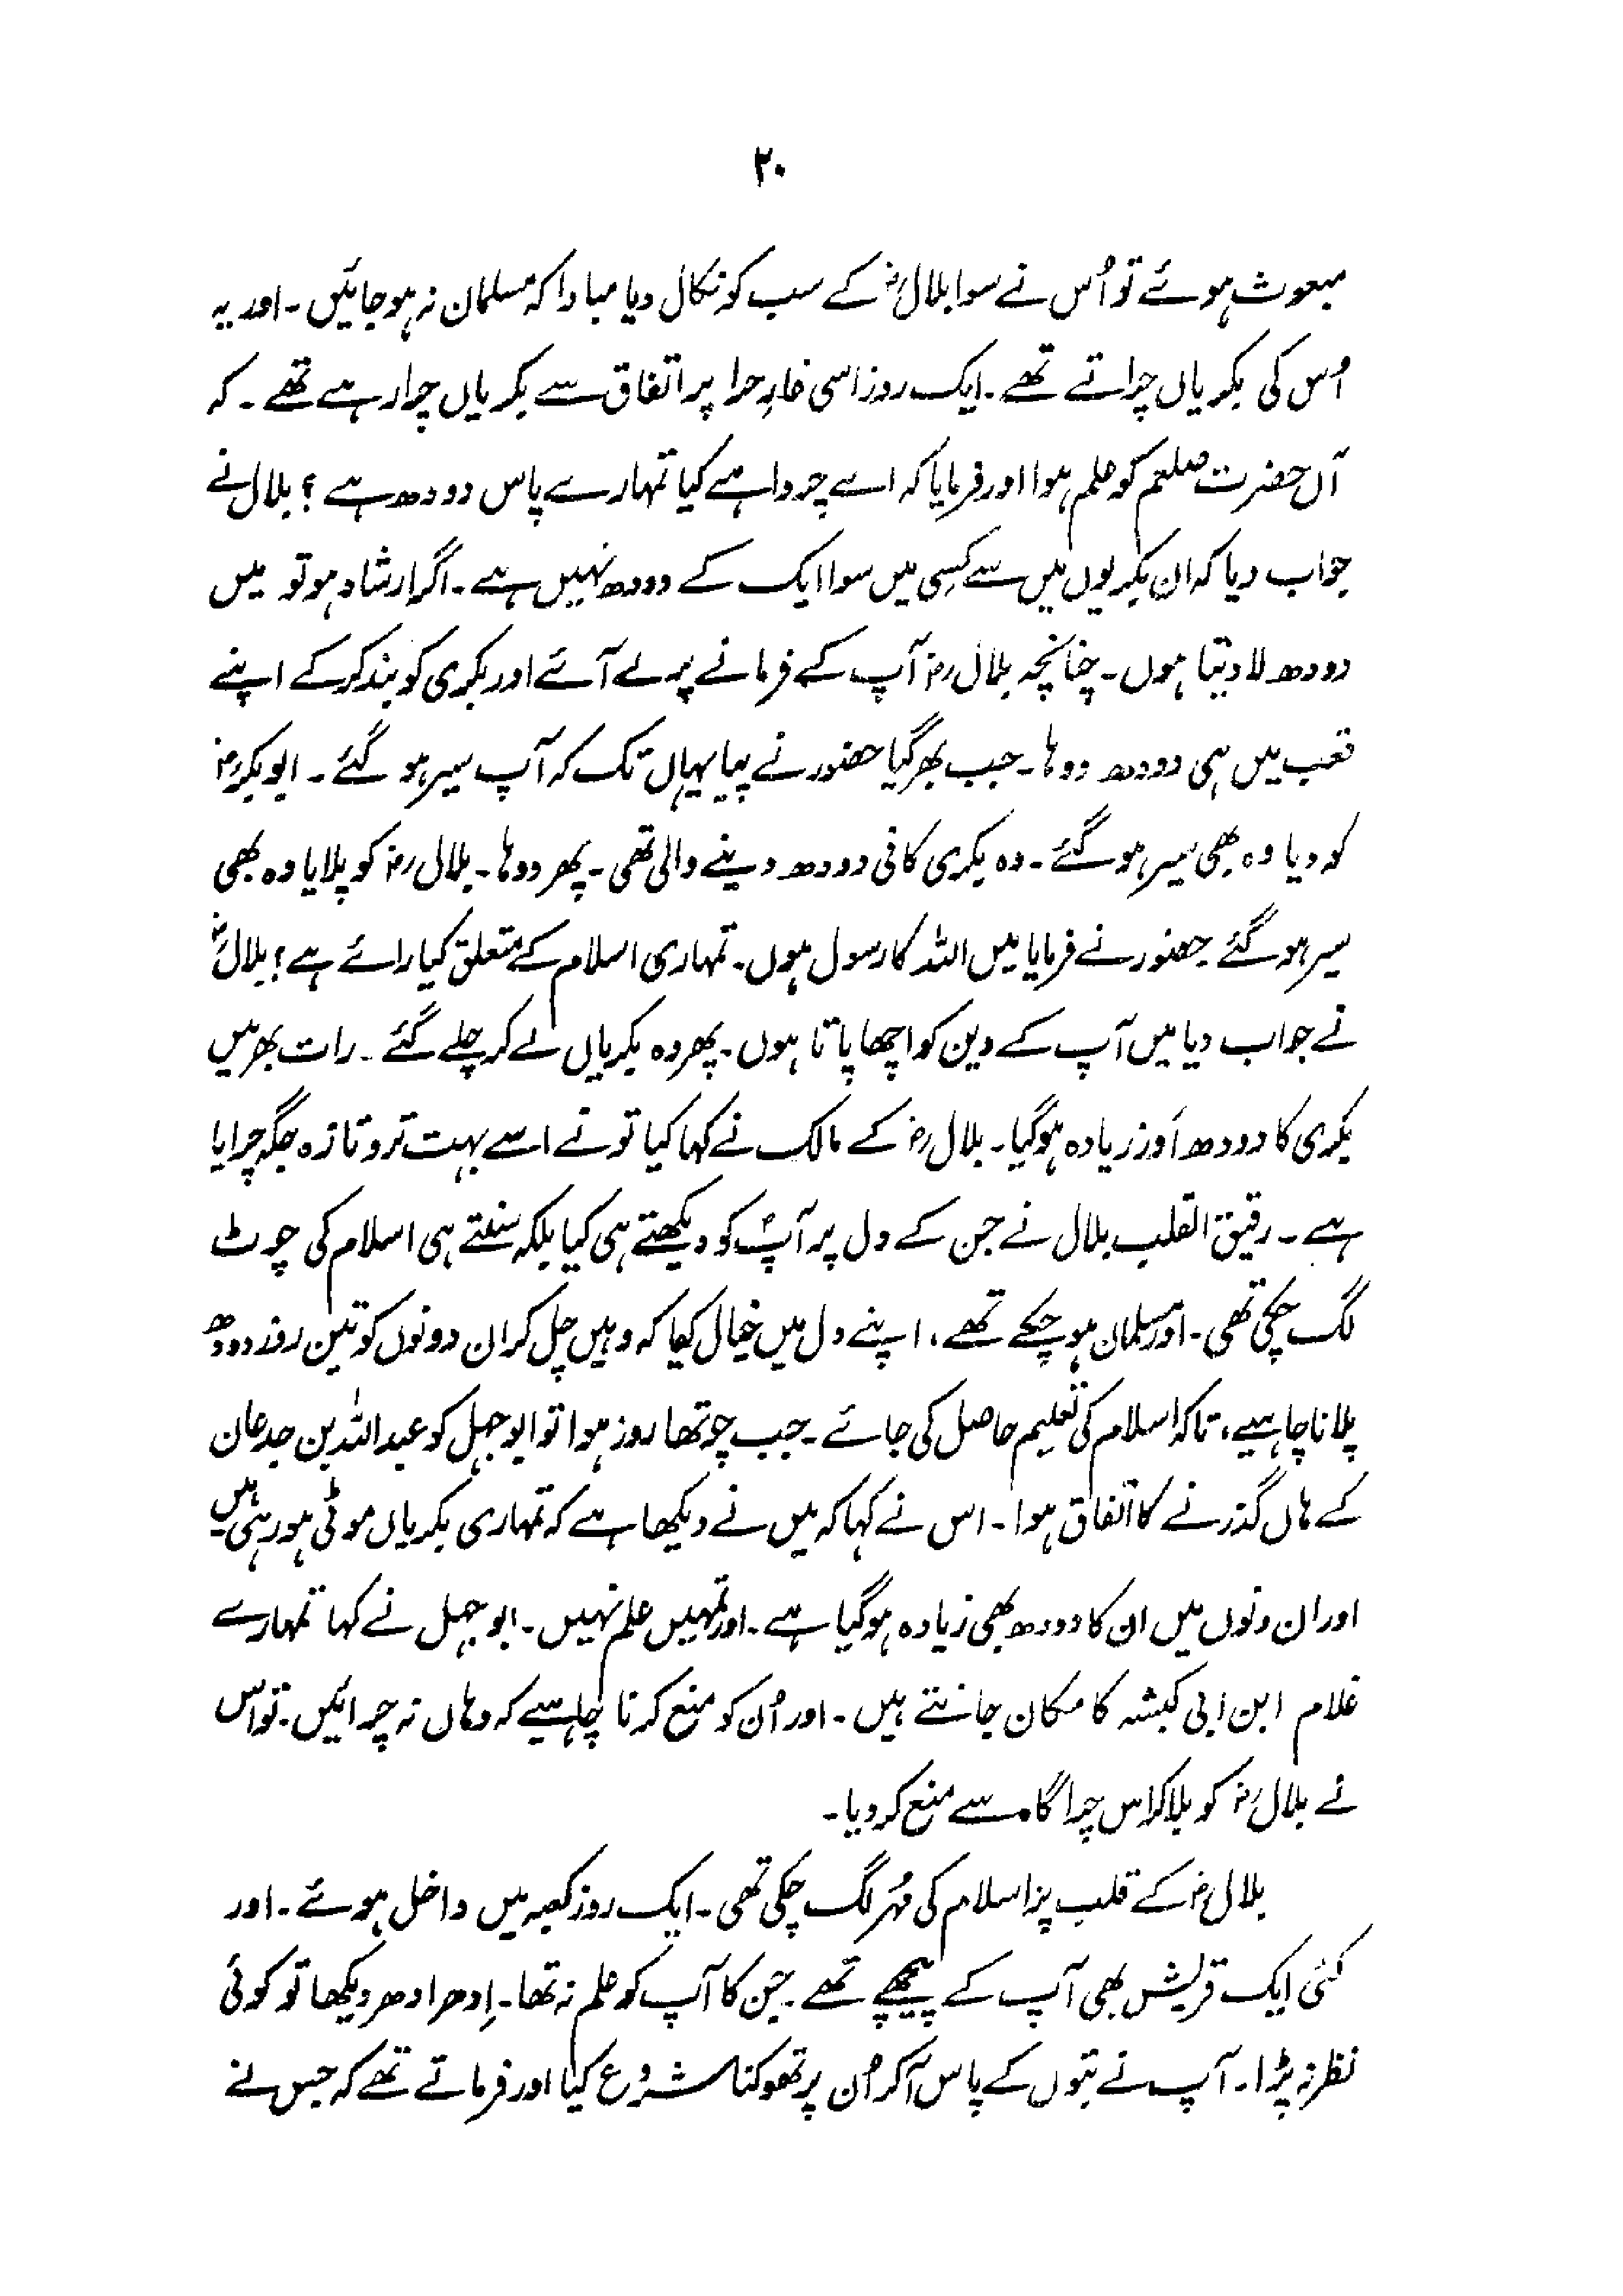 ۲۰
مبعوث ہوئے تو اُس نے سوا بلالؓ کے سب کو نکال دیا مبادا کہ مسلمان نہ ہو جائیں ۔ اور یہ
اُس کی بکریاں چراتے تھے ۔ ایک روز اسی غارِ حرا پر اتفاق سے بکریاں چرا رہے تھے ۔ کہ
آں حضرت صلعم کو علم ہوا اور فرمایا کہ اے چرواہے کیا تمہارے پاس دودھ ہے ؟ بلال نے
جواب دیا کہ ان بکریوں میں سے کسِی میں سوا ایک کے دودھ نہیں ہے ۔ اگر ارشاد ہو تو میں
دودھ لا دیتا ہوں ۔ چنانچہ بلالؓ آپ کے فرمانے پر لے آئے اور بکری کو بند کر کے اپنے
قعب میں ہی دودھ دوہا ۔ جب بھر گیا حضور نے پیا یہاں تک کہ آپ سیر ہو گئے ۔ ابوبکرؓ
کو دیا وہ بھی سیر ہو گئے ۔ وہ بکری کافی دودھ دینے والی تھی ۔ پھر دوہا ۔ بلالؓ کو پلایا وہ بھی
سیر ہو گئے حضور نے فرمایا میں اللہ کا رسول ہوں ۔ تمہاری اسلام کے متعلق کیا رائے ہے ؟ بلالؓ
نے جواب دیا میں آپ کے دین کو اچھا پاتا ہوں ۔ پھر وہ بکریاں لے کر چلے گئے ۔ رات بھر میں
بکری کا دودھ اَور زیادہ ہو گیا ۔ بلالؓ کے مالک نے کہا کیا تو نے اسے بہت تر و تازہ جگہ چرایا
ہے ۔ رقیق القلب بلال نے جن کے دل پر آپؐ کو دیکھتے ہی کیا بلکہ سنتے ہی اسلام کی چوٹ
لگ چکی تھی ۔ اور مسلمان ہو چکے تھے ، اپنے دل میں خیال کیا کہ وہیں چل کر ان دونوں کو تین روز دودھ
پلانا چاہیے ، تاکہ اسلام کی تعلیم حاصل کی جائے ۔ جب چوتھا روز ہوا تو ابوجہل کو عبداللہ بن جدعان
کے ہاں گذرنے کا اتفاق ہوا ۔ اس نے کہا کہ میں نے دیکھا ہے کہ تمہاری بکریاں موٹی ہو رہی ہیں
اور ان دنوں میں ان کا دودھ بھی زیادہ ہو گیا ہے ۔ اور تمہیں علم نہیں ۔ ابوجہل نے کہا تمہارے
غلام ابن ابی کبشہ کا مکان جانتے ہیں ۔ اور اُن کو منع کرنا چاہیے کہ وہاں نہ چرائیں ۔ تو اس
نے بلالؓ کو بلا کر اس چراگاہ سے منع کر دیا ۔
بلالؓ کے قلب پر اسلام کی مُہر لگ چکی تھی ۔ ایک روز کعبہ میں داخل ہوئے ۔ اور
کئی ایک قریش بھی آپ کے پیچھے تھے ۔ جن کا آپ کو علم نہ تھا ۔ اِدھر ادھر دیکھا تو کوئی
نظر نہ پڑا ۔ آپ نے بتوں کے پاس آ کر اُن پر تھوکنا شروع کیا اور فرماتے تھے کہ جس نے